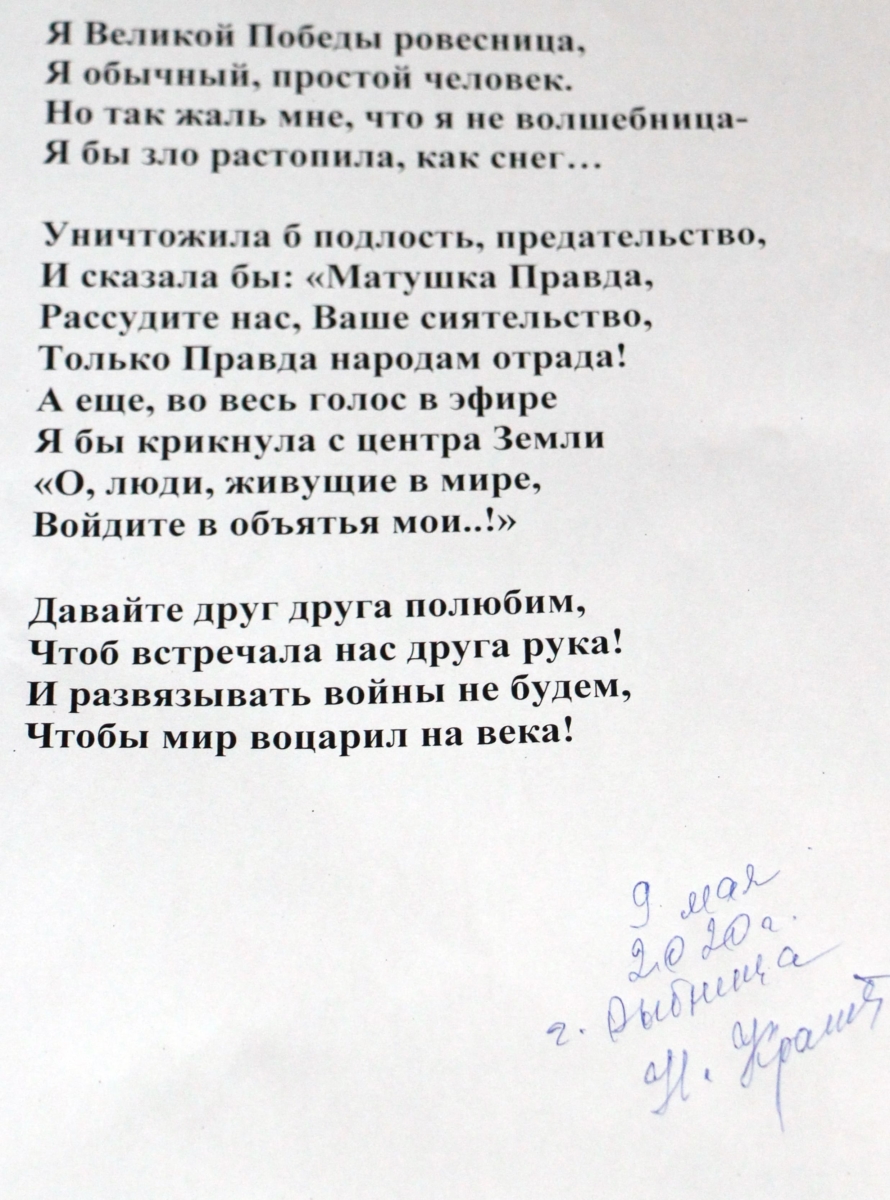 Я Великой Победы ровесница,
Я обычный, простой человек.
Но так жаль мне, что я не волшебница-
Я бы зло растопила, как снег…
Уничтожила б подлость, предательство,
И сказала бы: «Матушка Правда,
Рассудите нас, Ваше сиятельство,
Только Правда народам отрада!
А еще, во весь голос в эфире
Я бы крикнула с центра Земли
«О, люди, живущие в мире,
Войдите в объятья мои..!»
Давайте друг друга полюбим,
Чтоб встречала нас друга рука!
И развязывать войны не будем,
Чтобы мир воцарил на века!
9 мая
2020г.
г. Рыбница
Н.